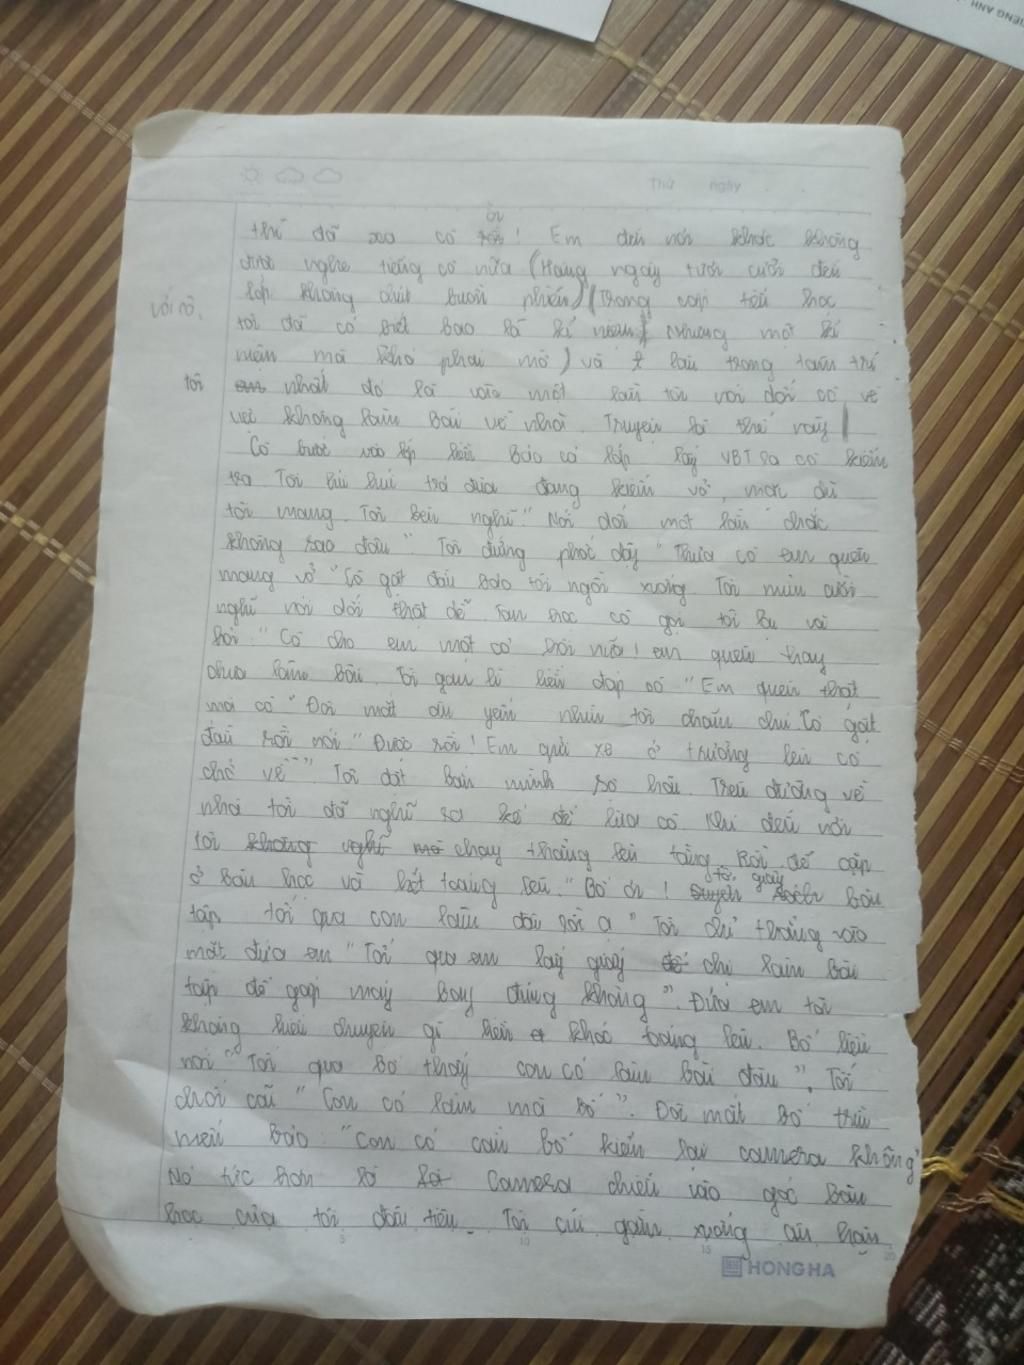 IENG ANH
Thứ ngày
ơi
thì đã xa cô rồi! Em đến nơi khác không
được nghe tiếng cô nữa (Hàng ngày tươi cười đến
lớp không chút buồn phiền) (Trong cấp tiểu học
với cô,
tôi đã có biết bao là kỉ niệm) Nhưng một kỉ
niệm mà khó phai mờ) và sâu trong tâm trí
tôi
em nhất đó là vào một lần tôi nói dối cô về
việc không làm bài về nhà. Truyện là thế này
Cô bước vào lớp liền bảo cả lớp lấy VBT ra cô kiểm
tra. Tôi lúi húi trả đũa đang kiếm vở, mặc dù
tôi mang. Tôi liền nghĩ "Nói dối một lần chắc
không sao đâu". Tôi đứng phắt dậy "Thưa cô em quên
mang vở" Cô gật đầu bảo tôi ngồi xuống. Tôi mỉm cười
nghĩ nói dối thật dễ. Tan học cô gọi tôi lại và
hỏi "Cô cho em một cơ hội nữa! em quên hay
chưa làm bài. Tôi gan lì liền đáp cô "Em quên thật
mà cô" Đôi mắt dịu yến nhìn tôi chăm chú. Cô gật
đầu rồi nói "Được rồi! Em gửi xe ở trường lên cô
chở về" Tôi đột bản mình sợ hãi. Trên đường về
nhà tôi đã nghĩ ra kế để lừa cô. Khi đến nơi
tôi không nghĩ mà chạy thẳng lên tầng. Rồi để cặp
tờ giấy
ở bàn học và hét toáng lên. "Bố ơi! quyển sách bài
tập tối qua con làm đâu rồi ạ" Tôi chỉ thẳng vào
mặt đứa em "Tối qua em lấy giấy để chị làm bài
tập để gấp máy bay đúng không". Đứa em tôi
không hiểu chuyện gì liền khóc toáng lên. Bố liền
nói "Tối qua bố thấy con có làm bài đâu". Tôi
chối cãi "Con có làm mà bố". Đôi mắt bố trìu
mến bảo: "Con có cần bố kiểm lại camera không"
Nó tức hơn là là Camera chiếu vào góc bàn
học của tôi đầu tiên. Tôi cúi gằm xuống ân hận
5 10 15 20
HONG HA